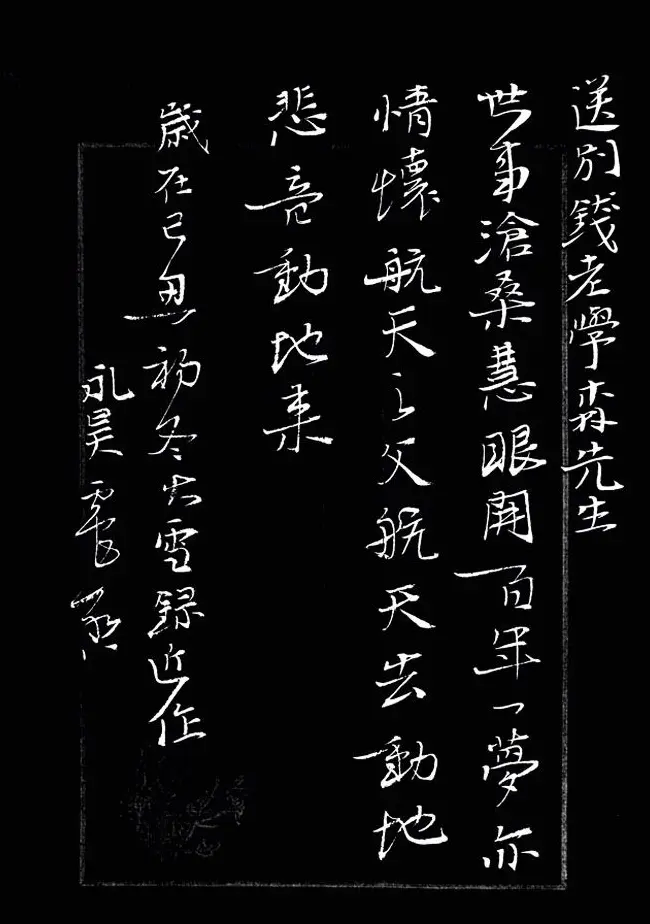 送別錢老學森先生
世事滄桑慧眼開百年一夢亦
情懷航天之父航天去動地
悲音動地來
歲在己丑初冬大雪錄近作